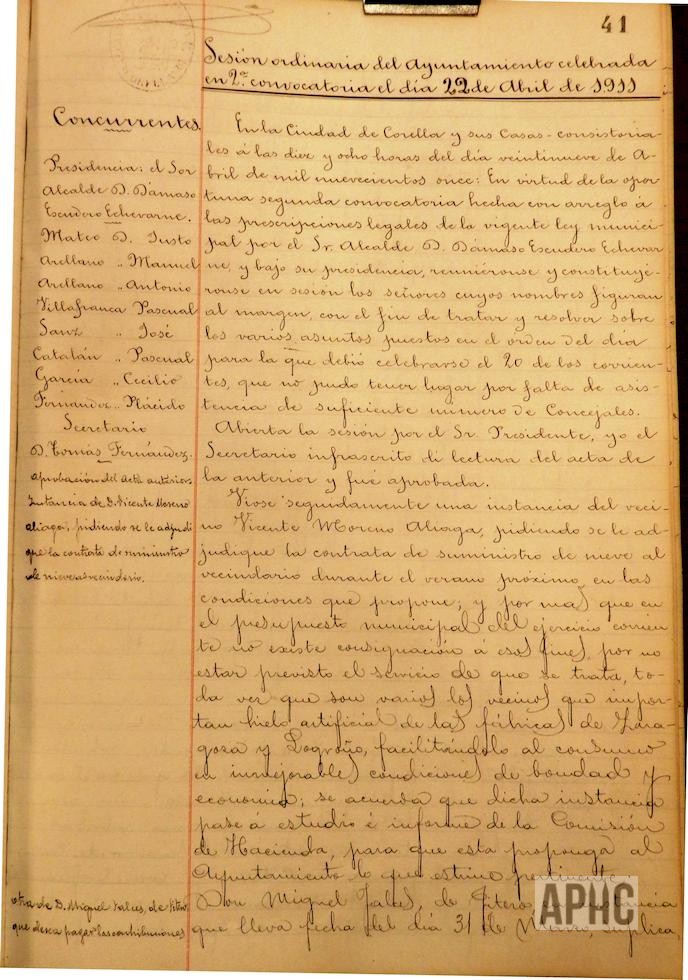 41
Sesión ordinaria del Ayuntamiento celebrada
en 2ª convocatoria el día 22 de Abril de 1911
Concurrentes.
Presidencia: el Sor
Alcalde D. Dámaso
Escudero Echevarne.
Mateo D. Justo
Arellano „ Manuel
Arellano „ Antonio
Villafranca Pascual
Sanz „ José
Catalán „ Pascual
García „ Cecilio
Fernandez „ Plácido
Secretario
D. Tomás Fernández.
aprobación del acta anterior.
Instancia de D. Vicente Moreno
aliaga, pidiendo se le adjudi
que la contrata de suministro
de nieve al vecindario.
otra de D. Miguel Jalces, de Fitero,
que desea pagar las contribuciones
En la Ciudad de Corella y sus Casas-consistoria-
les á las diez y ocho horas del día veintinueve de A-
bril de mil nuevecientos once: En virtud de la opor-
tuna segunda convocatoria hecha con arreglo á
las prescripciones legales de la vigente ley munici-
pal por el Sr. Alcalde D. Dámaso Escudero Echevar
ne, y bajo su presidencia, reuniéronse y constituyé-
ronse en sesión los señores cuyos nombres figuran
al margen, con el fin de tratar y resolver sobre
los varios asuntos puestos en el orden del día
para la que debió celebrarse el 20 de los corrien-
tes, que no pudo tener lugar por falta de asis-
tencia de suficiente número de Concejales.
Abierta la sesión por el Sr. Presidente, yo el
Secretario infrascrito di lectura del acta de
la anterior y fué aprobada.
Viose seguidamente una instancia del veci-
no Vicente Moreno Aliaga, pidiendo se le ad-
judique la contrata de suministro de nieve al
vecindario durante el verano próximo, en las
condiciones que propone; y por mas que en
el presupuesto municipal del ejercicio corrien
te no existe consignación á esos fines, por no
estar previsto el servicio de que se trata, to-
da vez que son varios los vecinos que impor-
tan hielo artificial de las fábricas de Zara-
goza y Logroño, facilitándolo al consumo
en inmejorables condiciones de bondad y
economía; se acuerda que dicha instancia
pase á estudio é informe de la Comisión
de Hacienda, para que esta proponga al
Ayuntamiento lo que estime
Don Miguel Jalces, de Fitero, en instancia
que lleva fecha del día 31 de Marzo, suplica
APHC